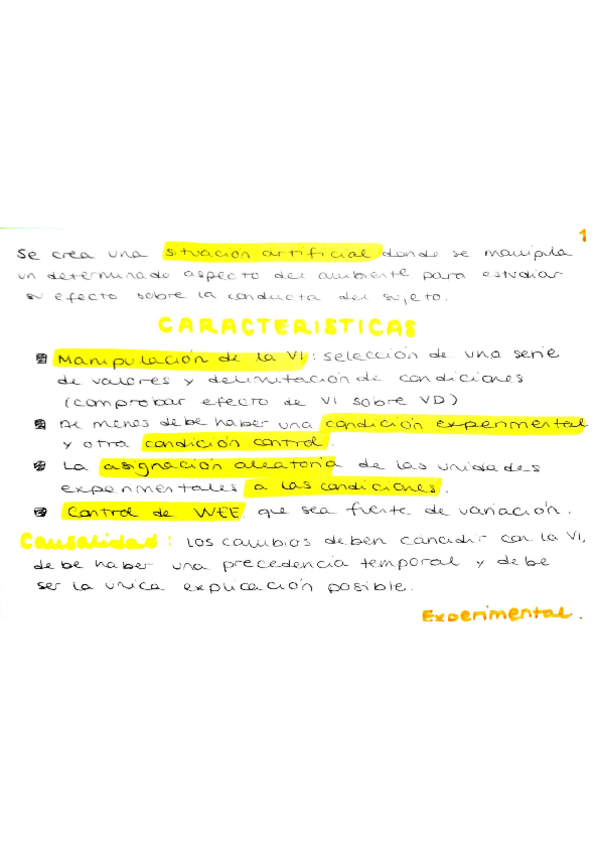 1
Se crea una situación artificial donde se manipula
un determinado aspecto del ambiente para estudiar
su efecto sobre la conducta del sujeto.
CARACTERISTICAS
Manipulación de la VI: selección de una serie
de valores y delimitación de condiciones
(comprobar efecto de VI sobre VD)
Al menos debe haber una condición experimental
y otra condición control.
La asignación aleatoria de las unidades
experimentales a las condiciones.
Control de VVEE que sea fuente de variación.
Causalidad: Los cambios deben coincidir con la VI,
debe haber una precedencia temporal y debe
ser la unica explicación posible.
Experimental.